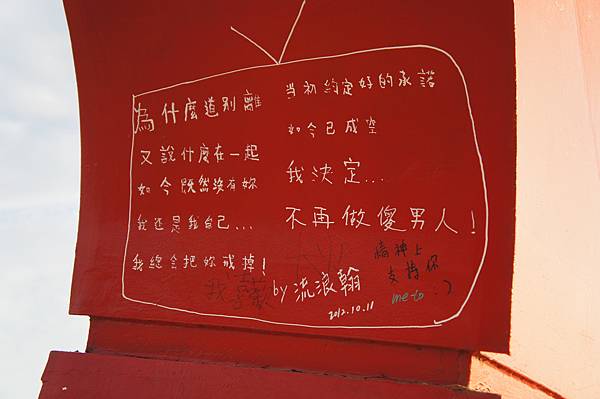 為什麼道別離
又說什麼在一起
如今既然沒有妳
我还是我自己...
我總会把妳戒掉!
當初約定好的承諾
如今已成空
我決定...
不再做傻男人!
by 流浪翰
2012.10.11
精神上
支持你
me-to :)